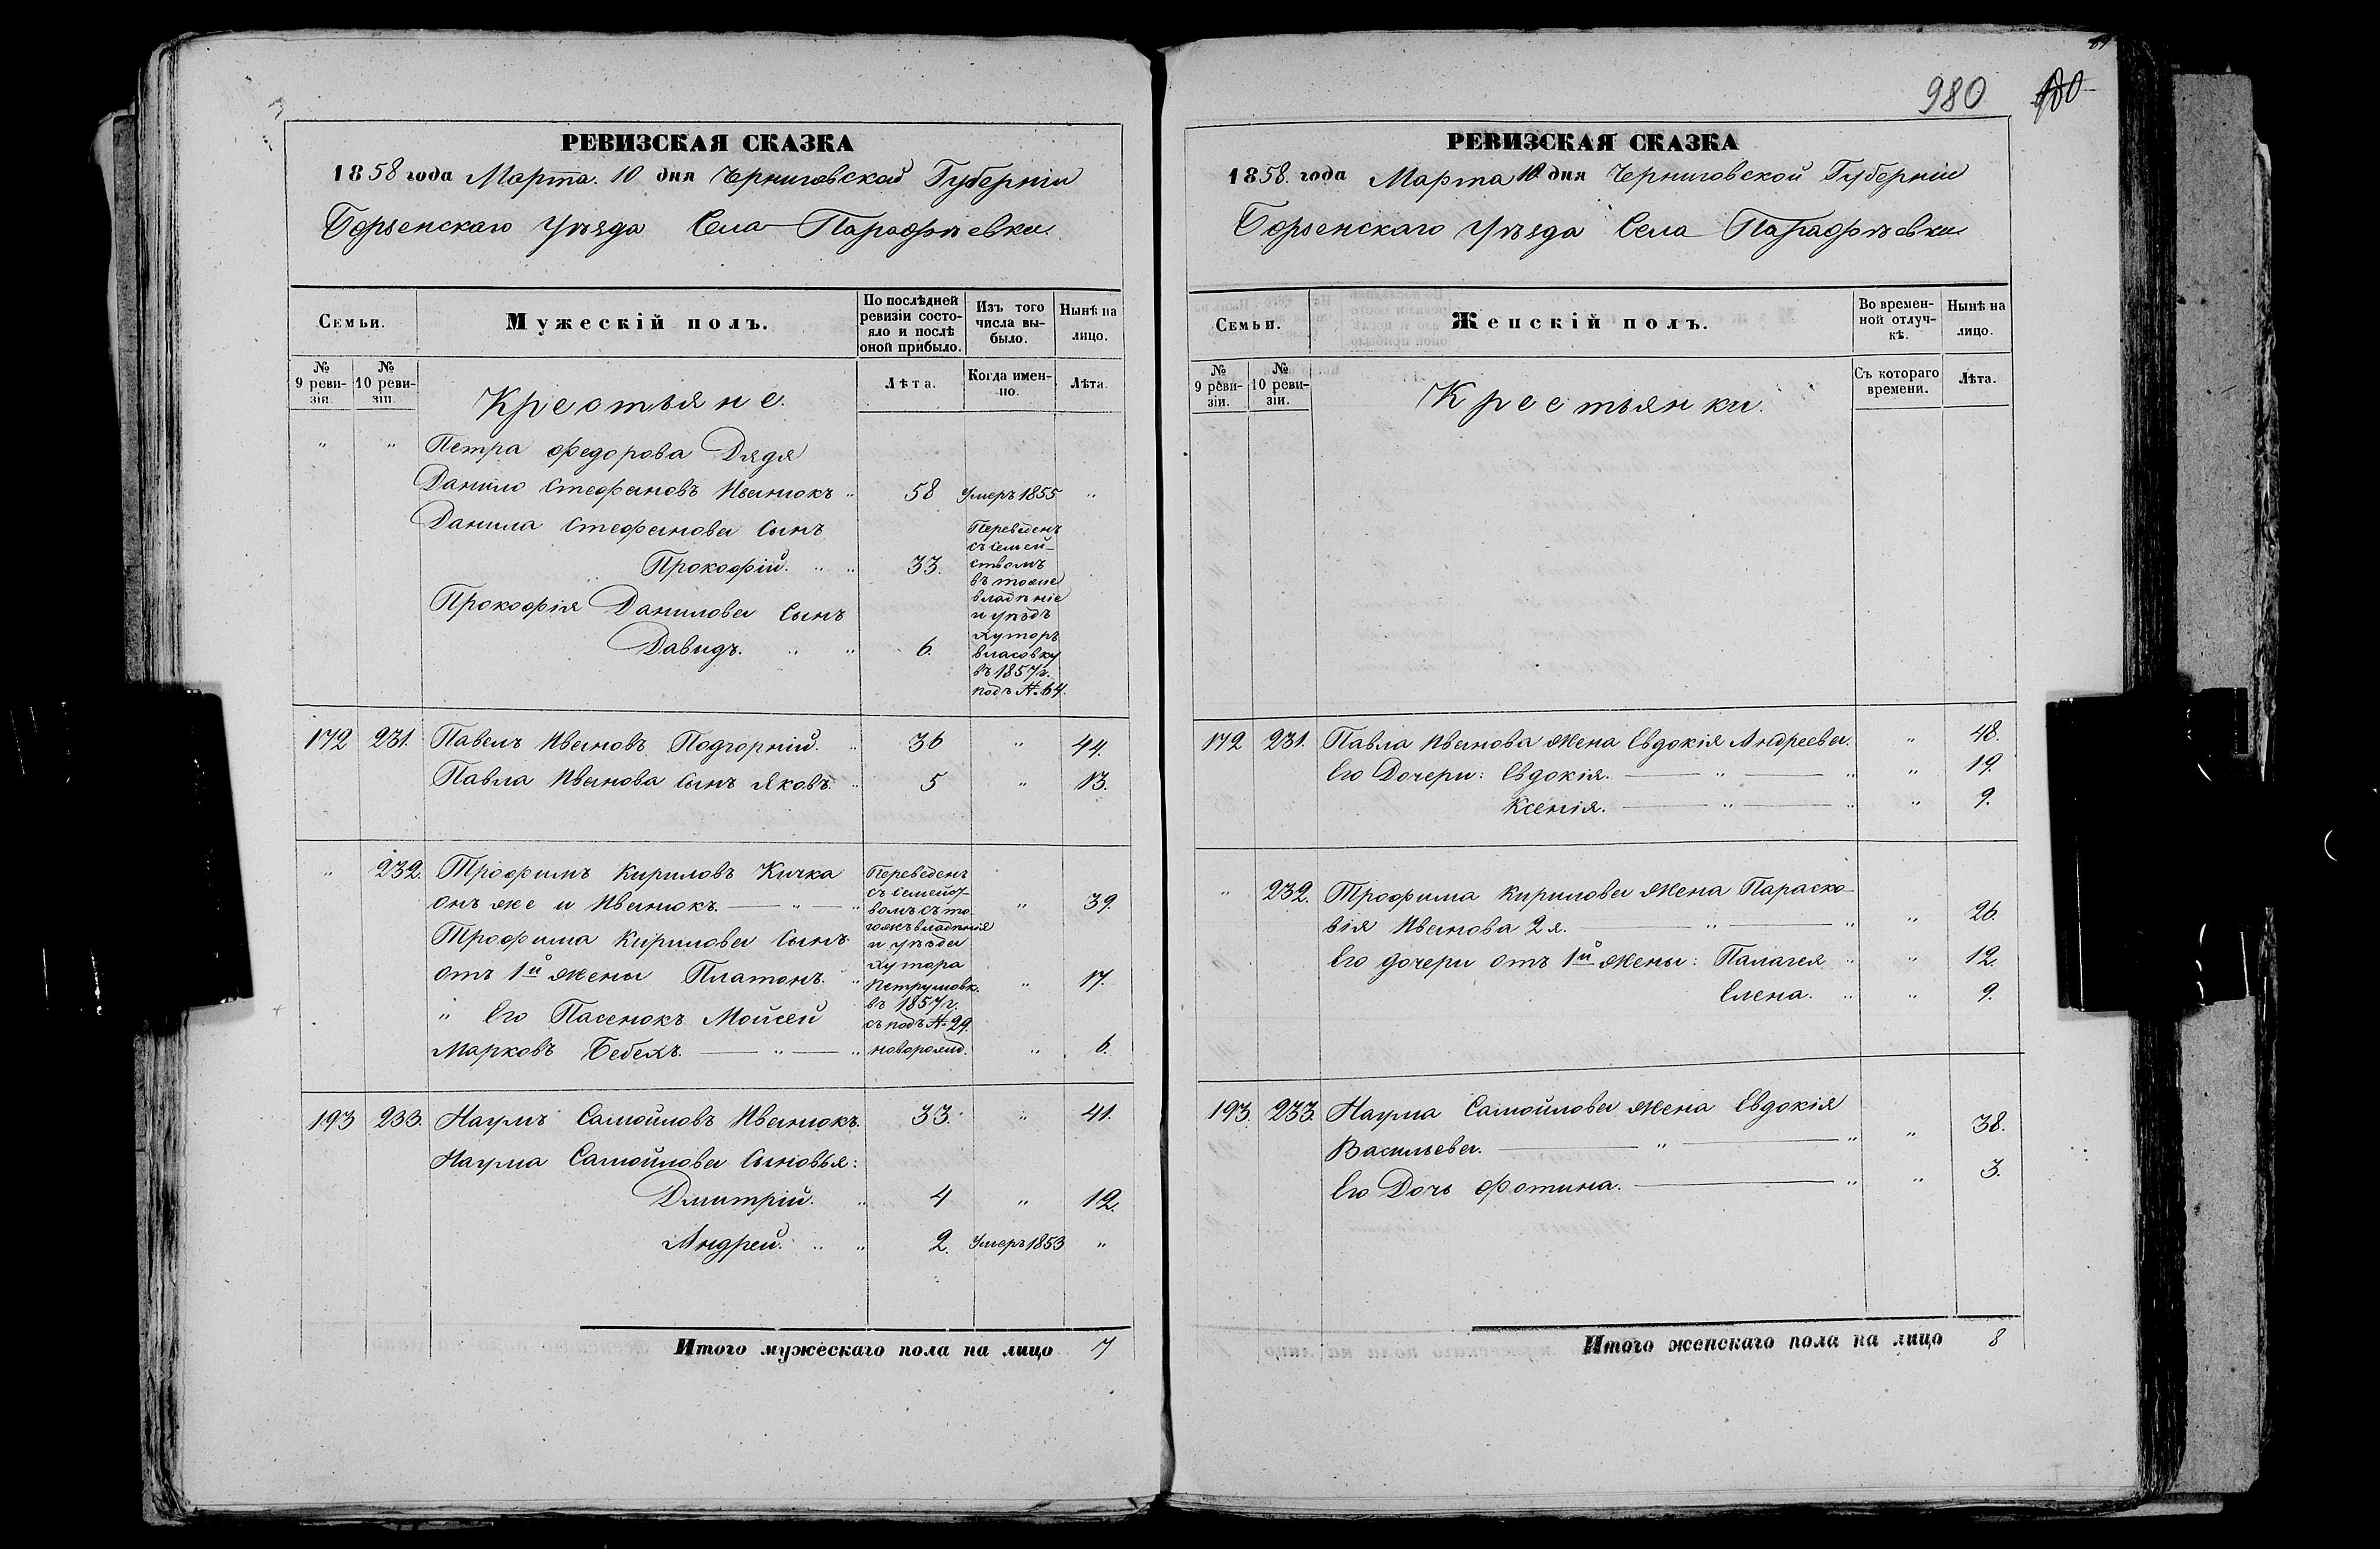 980
РЕВИЗСКАЯ СКАЗКА
1858 года Марта 10 дня Черниговской Губерніи
Борзенскаго Уѣзда Села Парафѣевки
Семьи.
Мужескій полъ.
По послѣдней ревизіи состояло и послѣ оной прибыло.
Изъ того числа выбыло.
Нынѣ на лицо.
№ 9 ревизіи.
№ 10 ревизіи.
Лѣта.
Когда именно.
Лѣта.
Крестьяне.
" " Петра Федорова Дядя
Данило Стефановъ Иванюкъ " 58 Умеръ 1855 "
Данила Стефанова Сынъ
Прокофій. " " 33.
Прокофія Данилова Сынъ
Давидъ. " " 6.
Переведенъ
съ семей-
ствомъ
въ тоже
владѣніе
и уѣздъ
хуторъ
Власовку
въ 1857 г.
подъ № 64.
172 231. Павелъ Ивановъ Подгорній. " 36 " 44.
Павла Иванова Сынъ Яковъ. " 5 " 13.
" 232. Трофимъ Кириловъ Кичка
онъ же и Иванюкъ. " " " 39.
Трофима Кирилова Сынъ
отъ 1й жены Платонъ. " " 17.
" Его Пасенокъ Мойсей
Марковъ Бебехъ. " " новорожд. " 6.
Переведенъ
съ семейст-
вомъ съ то-
гожъ владѣнія
и уѣзда
хутора
Петрушовк.
въ 1857 г.
съ подъ № 29.
193 233. Наумъ Самойловъ Иванюкъ. 33. " 41.
Наума Самойлова Сыновья:
Дмитрій. " 4 " 12.
Андрей. " " 2. Умеръ 1853 "
Итого мужескаго пола на лицо 7
РЕВИЗСКАЯ СКАЗКА
1858 года Марта 10 дня Черниговской Губерніи
Борзенскаго Уѣзда Села Парафѣевки
Семьи.
Женскій полъ.
Во временной отлучкѣ.
Нынѣ на лицо.
№ 9 ревизіи.
№ 10 ревизіи.
Съ котораго времени.
Лѣта.
Крестьянки.
172 231. Павла Иванова жена Евдокія Андреева. " 48.
Его Дочери: Евдокія. " " " 19.
Ксенія. " " " 9.
" 232. Трофима Кирилова жена Параско-
вія Иванова 2я. " " " 26.
Его дочери отъ 1й жены: Палагея " " 12.
Елена. " " 9.
193. 233. Наума Самойлова жена Евдокія
Васильева. " " " 38.
Его Дочь Фотина. " " 3.
Итого женскаго пола на лицо 8